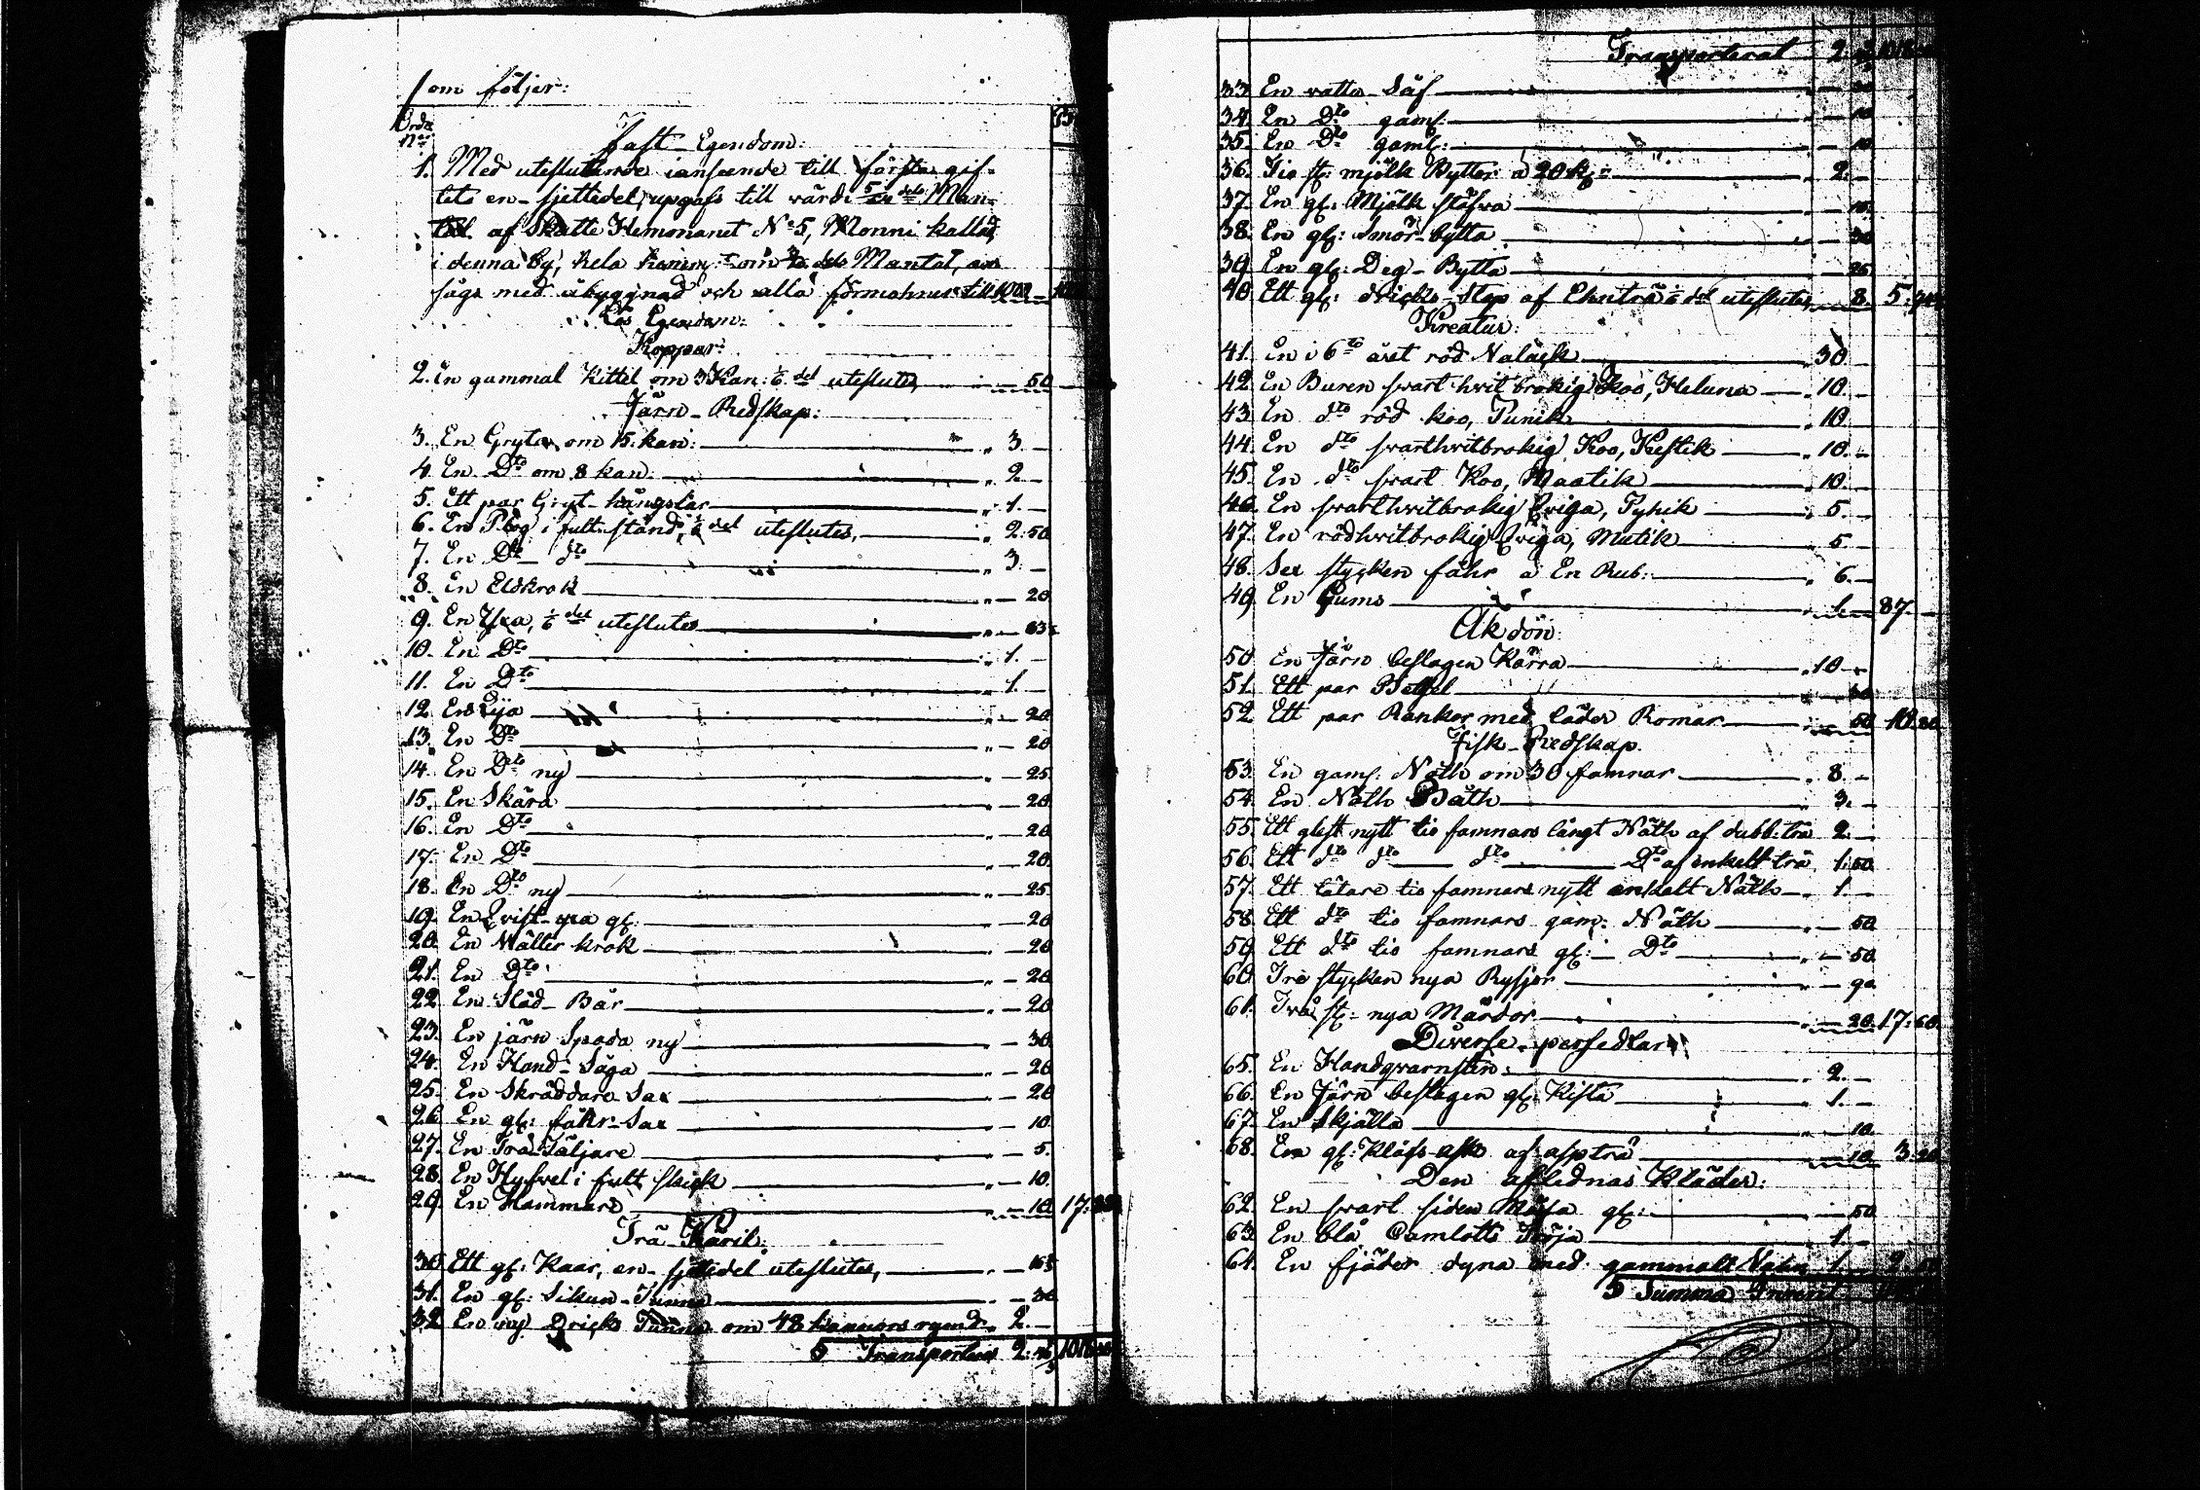 som följer:
Ordn
No
Fast-Egendom:
1. Med uteslutande i anseende till första gif-
tets en-sjettedel, upgafs till värde 5/24 dels Man-
tal. af Skatte Hemmanet No 5, Monni kallad,
i denna by, hela hemm:t om de Mantal, an-
sågs med åbyggnad och alla förmohner till 1000
Lös Egendom:
Koppar:
2. En gammal Kittel om 3 Kan: 1/6 del uteslutes — 50
Järn-Redskap:
3. En Gryta om 15. kan: " 3. —
4. En Dto om 8 kan: " 2. —
5. Ett par Gryt-hängslar " 1. —
6. En Plog i fult stånd, 1/6 del uteslutes, " 2. 50
7. En Dto dto " 3. —
8. En Eldkrok " — 20
9. En Yxa, 1/6 del uteslutes " — 83
10. En Dto " 1. —
11. En Dto " 1. —
12. En Lija " — 20
13. En Dto " — 20
14. En Dto ny " — 25
15. En Skära " — 20
16. En Dto " — 20
17. En Dto " — 20
18. En Dto ny " — 25
19. En Qvist-yxa gl: " — 20
20. En Wälter krok " — 20
21. En Dto " — 20
22. En Släd-Bår " — 20
23. En järn Spada ny " — 30
24. En Hand-Såga " — 20
25. En Skräddare Sax " — 20
26. En gl: fåhr-Sax " — 10
27. En Trä Täljare " — 5.
28. En Hyfvel i fult skick " — 10.
29. En Hammare " — 10 17:
Trä-Käril:
30. Ett gl: Kaar, en-sjettedel uteslutes, " —
31. En gl: Sikun-Tunna " — 30
32. En Dricks Tunna om 48 kannors rymd " 2. —
Transporteras 2: 1018
Transporterat 2. 1018
33. En vatto-Såf — 20
34. En Dto gaml: — 10
35. En Dto gaml: — 10
36. Tio st: mjölk Byttor a 20 k: " 2. —
37. En gl: Mjölk stäfva — 10.
38. En gl: Smör-bytta " — 30
39. En gl: Deg-Bytta — 25
40. Ett gl: dricks-Stop af Ehnträ 1/6 del uteslutes — 8. 5:
Kreatur:
41. En i 6te året röd Naläck 30
42. En Buren svart hvit brokig Koo, Heluna " 10. —
43. En dto röd koo, Punik " 10
44. En dto svarthvitbrokig Koo, Kestik " 10. —
45. En dto svart Koo, Maatik " 10. —
46. En svarthvitbrokig Qviga, Tyhik " 5. —
47. En rödhvitbrokig Qviga, Mutik " 5. —
48. Sex stycken fåhr a En Rub: " 6. —
49. En Gums " 1. — 87. —
Åkdon:
50. En Järn beslagen Kärra " 10 —
51. Ett par Betsel —
52. Ett par Rankor med läder Romar — 50
Fisk-Redskap.
53. En gaml: Noth om 30 famnar " 8. —
54. En Noth Båth " 3. —
55. Ett glest nytt tio famnars långt Näth af dubb: trå 2. —
56. Ett dto dto dto Dto af enkelt trå 1. 50
57. Ett tätare tio famnars nytt enkelt Näth " 1. —
58. Ett dto tio famnars gam: Näth " — 50
59. Ett dto tio famnars gl: Dto " — 50
60. Tre stycken nya Rysjor " — 90
61. Två st: nya Märdor " — 20. 17: 60.
Diverse-persedlar
65. En Handqvarnsten " 2. —
66. En Järn beslagen gl: Kista " 1. —
67. En Skjälla " — 10
68. En gl: Kläfs-ask af aspträ " — 10 3: 20
Den aflednas Kläder:
62. En svart siden Mössa gl: — 50
63. En blå Camlotts Tröja 1. —
64. En fjäder dyna med gammalt 1. 2. 50
Summa Inventarii